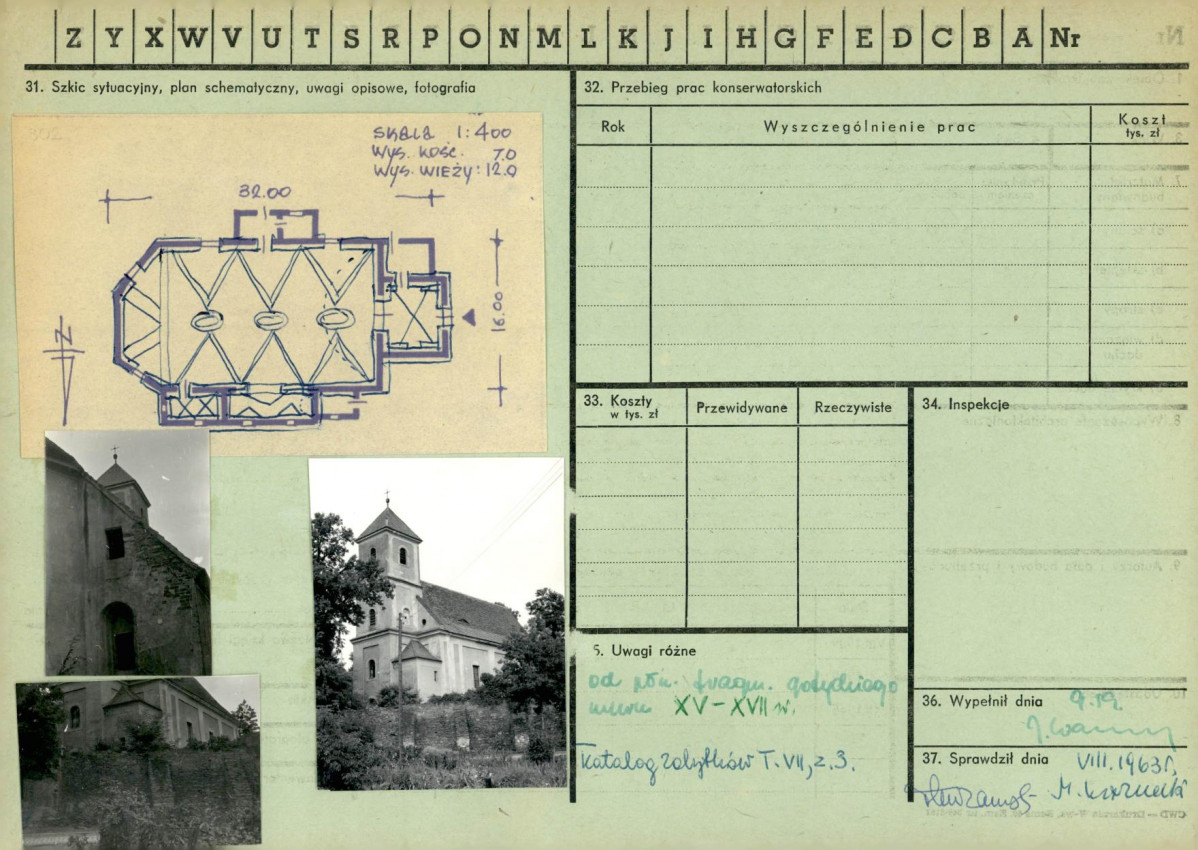 Z Y X W V U T S R P O N M L K J I H G F E D C B A Nr
31. Szkic sytuacyjny, plan schematyczny, uwagi opisowe, fotografia
SKALA 1:400
WYS. KOŚC. 7.0
WYS. WIEŻY: 12.0
32.00
16.00
N
32. Przebieg prac konserwatorskich
Rok
Wyszczególnienie prac
Koszt
tys. zł
33. Koszty
w tys. zł
Przewidywane
Rzeczywiste
34. Inspekcje
5. Uwagi różne
od płn. fragm. gotyckiego
muru XV-XVII w.
Katalog zabytków T. VII, z. 3.
36. Wypełnił dnia
37. Sprawdził dnia VIII. 1963 r.